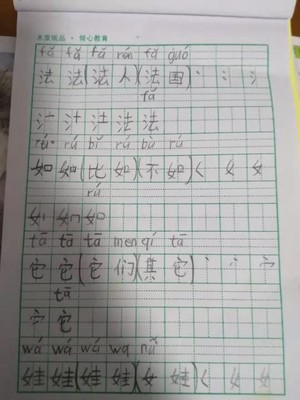 木浆纸品·倾心教育
fǎ fǎ fǎ rén fǎ guó
法 法(法 人)(法 国)丶 冫 氵
fǎ
氵 汁 法 法 法
rú rú bǐ rú bù rú
如 如(比 如)(不 如)く 女 女
rú
如 如 如
tā tā tā men qí tā
它 它(它 们)(其 它)丶 宀
tā
宁 它
wá wá wá wa nǚ
娃 娃(娃 娃)(女 娃)く 女 女